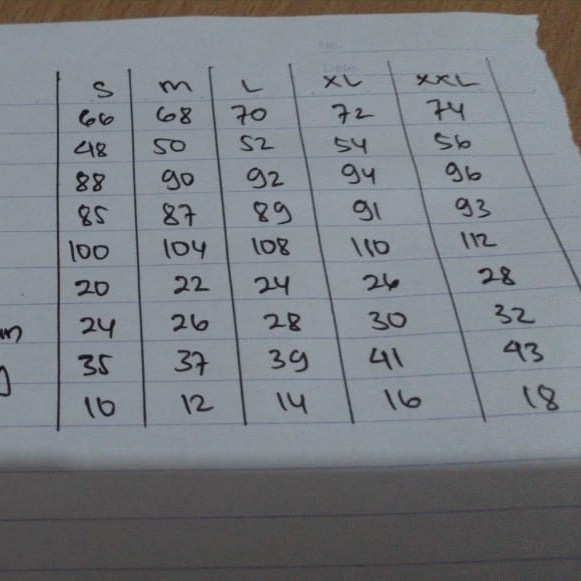 No.
Date
S M L XL XXL
66 68 70 72 74
48 50 52 54 56
88 90 92 94 96
85 87 89 91 93
100 104 108 110 112
20 22 24 26 28
24 26 28 30 32
35 37 39 41 43
10 12 14 16 18